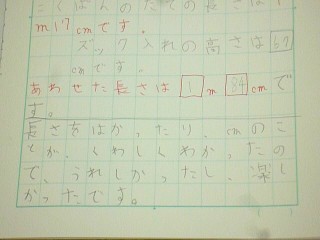 こくばんのたての長さは1
m17cmです。
ズック入れの高さは67
cmです。
あわせた長さは1m84cmで
す。
長さをはかったり、cmのこ
とが、くわしくわかったの
で、うれしかったし、楽し
かったです。